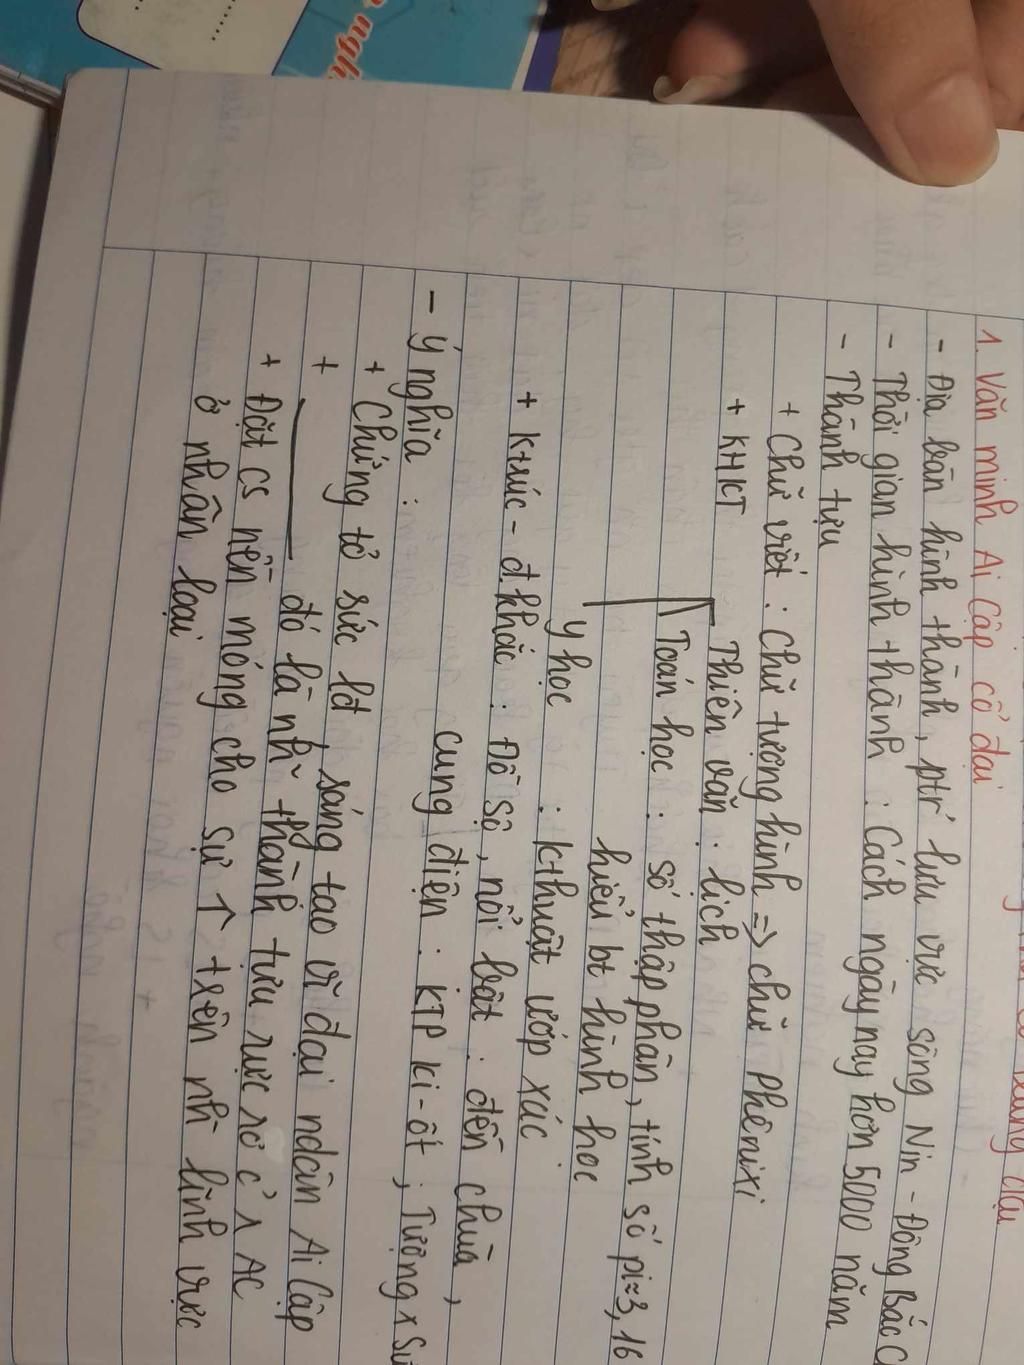 1. Văn minh Ai Cập cổ đại
- Địa bàn hình thành, ptr' lưu vực sông Nin - Đông Bắc C
- Thời gian hình thành : Cách ngày nay hơn 5000 năm
- Thành tựu
+ Chữ viết : Chữ tượng hình => chữ Phênixi
+ KHKT
Thiên văn : lịch
Toán học : số thập phân, tính số pi≈3,16
hiểu bt hình học
y học : kthuật ướp xác
+ Ktrúc - đ.khắc : Đồ sộ, nổi bật : đền chùa,
cung điện : KTP Ki-ốt ; Tượng x Sư
- Ý nghĩa :
+ Chứng tỏ sức lđ, sáng tạo vĩ đại ndân Ai Cập
+ đó là nh~ thành tựu rực rỡ c' AC
+ Đặt cs nền móng cho sự ↑ trên nh~ lĩnh vực
ở nhân loại